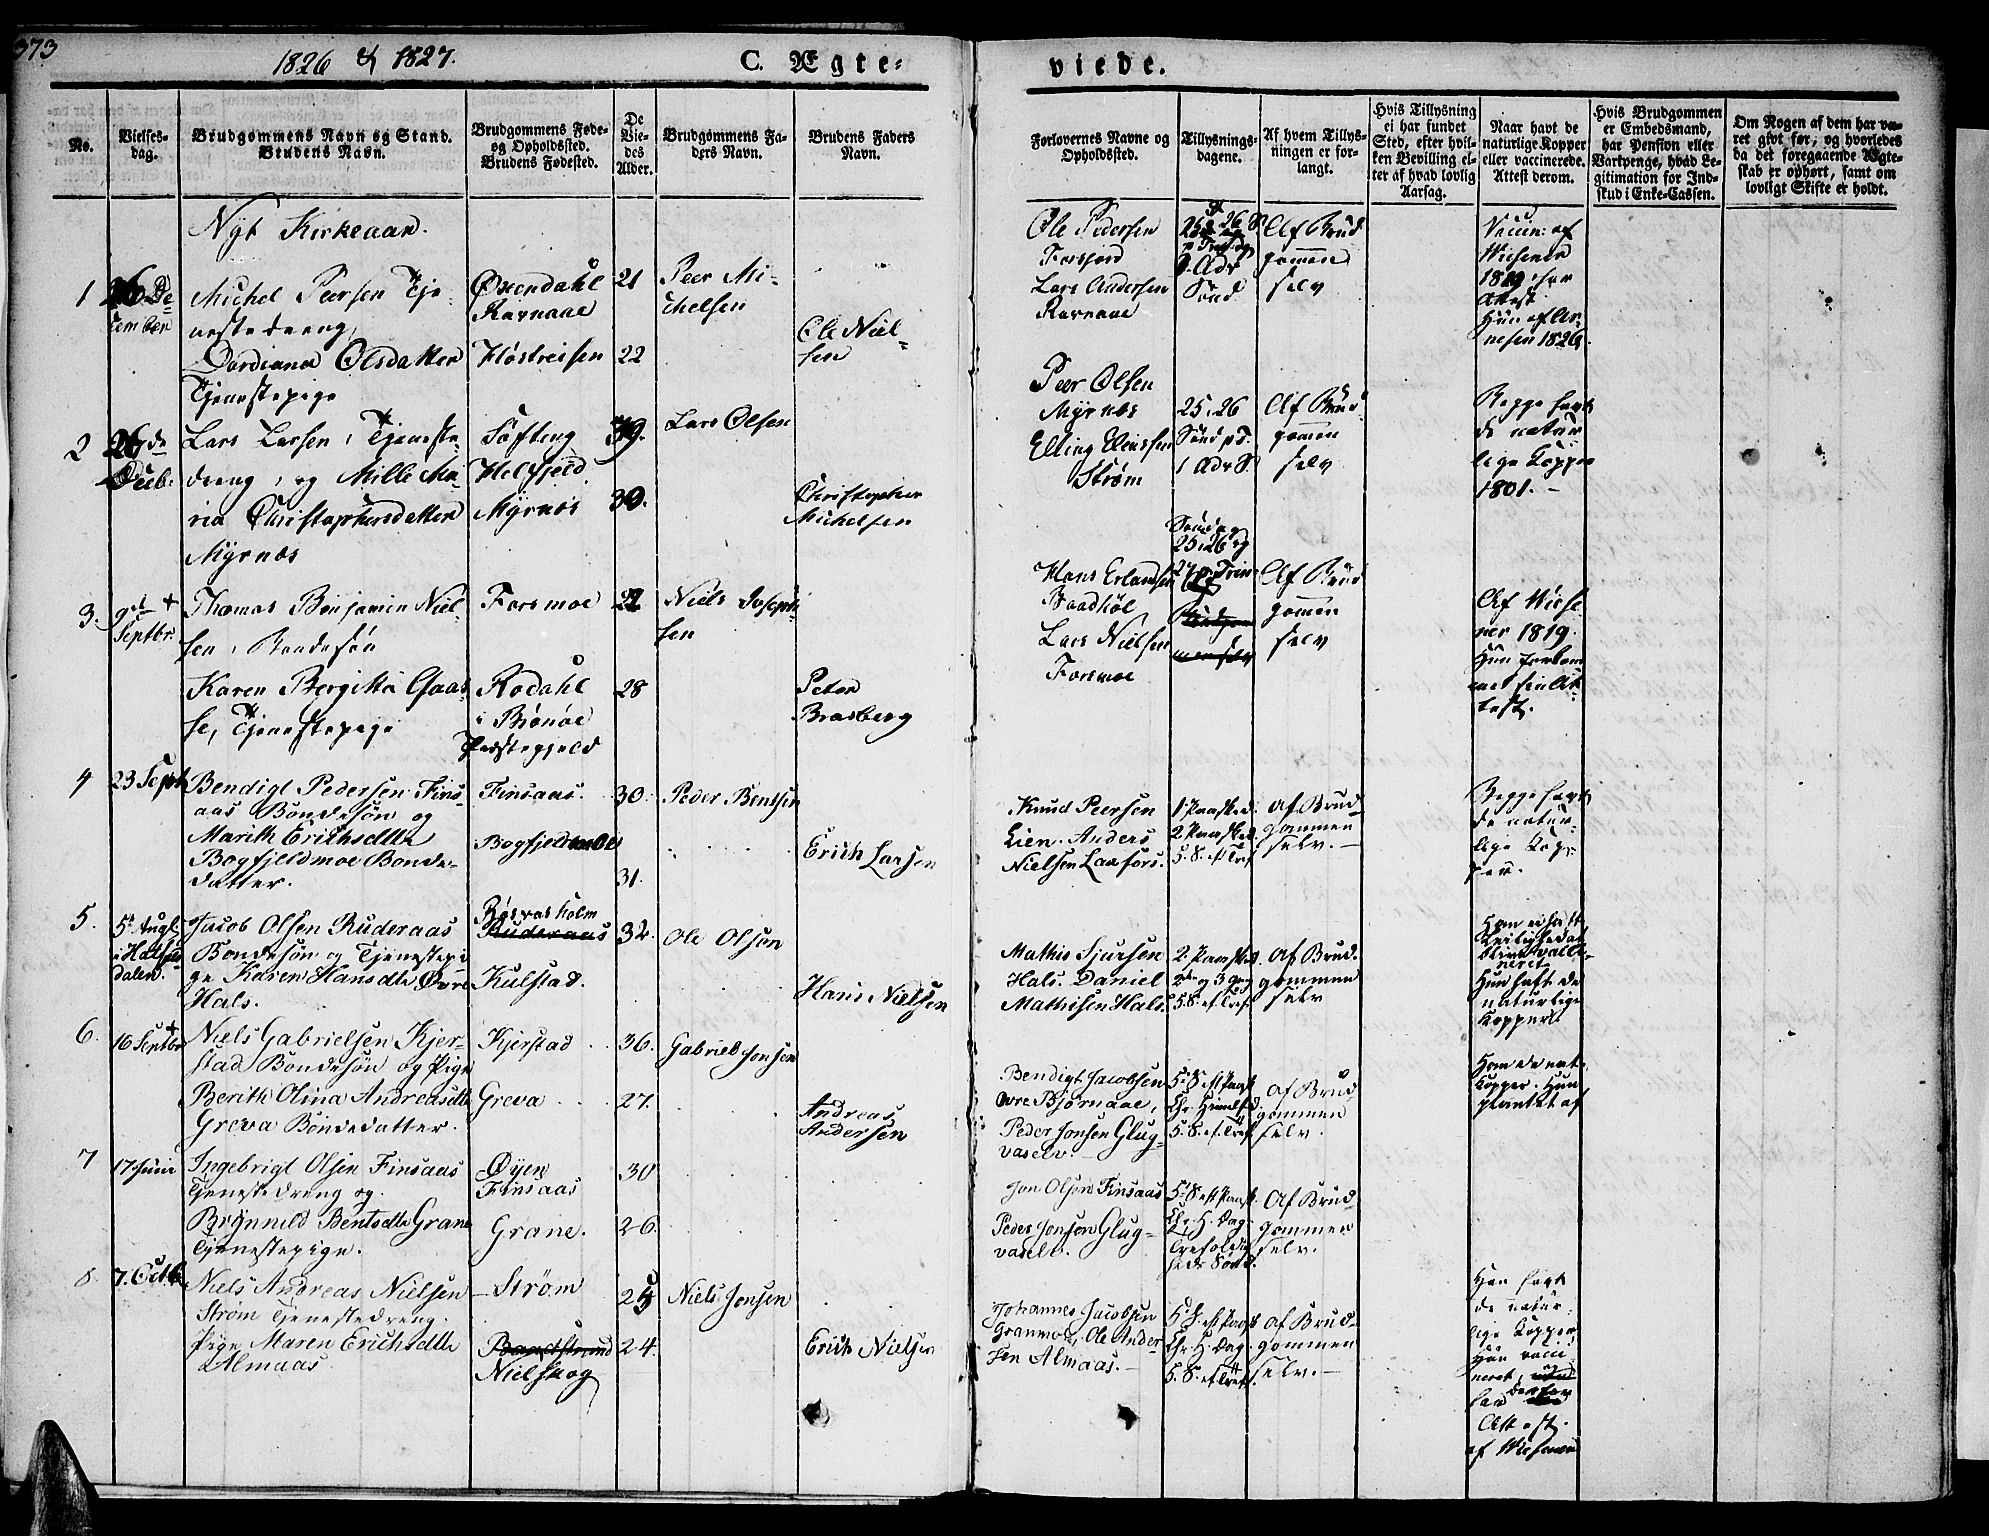 373
1826 & 1827.
C. Ægte-
viede.
No.
Vielses-
dag.
Brudgommens Navn og Stand.
Brudens Navn.
Brudgommens Føde-
og Opholdssted.
Brudens Fødested.
De
Vie-
des
Alder.
Brudgommens Fa-
ders Navn.
Brudens Faders
Navn.
Forlovernes Navne og
Opholdssted.
Tillysnings-
dagene.
Af hvem Tillys-
ningen er for-
langt.
Hvis Tillysning
ei har fundet
Sted, efter hvil-
ken Bevilling el-
ler af hvad lovlig
Aarsag.
Naar havt de
naturlige Kopper
eller vaccinerede.
Attest derom.
Hvis Brudgommen
er Embedsmand,
har Pension eller
Vartpenge, hvad Le-
gitimation for Ind-
skud i Enke-Cassen.
Om Nogen af dem har væ-
ret givt før, og hvorledes
da det foregaaende Ægte-
skab er ophørt, samt om
lovligt Skifte er holdt.
Nyt Kirkeaar.
1
26 De
cember
Michel Peersen Tje-
nestedreng,
Dordiana Olsdatter
Tjenestepige
Øxendahl
Ravnaae
Fløstreisen
21
22
Peer Mi-
chelsen
Ole Niel-
sen
Ole Pedersen
Forsjord
Lars Andersen
Ravnaae
Af Brud
gommen
selv
Vaccin: af
Wiesener
1819
Attest
Hun af Ar-
nesen 1826
2
26de
Decb:
Lars Larsen, Tjeneste
dreng, og Mille Ma-
ria Christophersdatter
Myrnæs
Søfting
Helfjeld
Myrnæs
39.
30.
Lars Olsen
Christopher
Michelsen
Peer Olsen
Myrnæs
Elling
Strøm
25, 26
Sønd p T.
1 Adv S.
Af Brud
gommen
selv
Begge havt
de natur
lige Kopper
1801. -
3.
9de +
Septbr:
Thomas Benjamin Niel-
sen, Bondesøn
Karen Bergitta Claus-
se, Tjenestepige
Forsmoe
Rødahl
i Brønøe
Præstegjeld
22
28
Niels Joseph-
sen
Peter
Brasberg
Hans Erlandsen
Baadhøl
Lars Nielsen
Forsmoe
Søndag
25, 26 og
27 p. Trin:
Af Brud
gommen
selv
Af Wiese
ner 1819.
Hun forkom
met sin At-
test.
4
23 Sept
Bendigt Pedersen Fins-
aas Bondesøn og
Marith Erichsdttr
Bogfjeldmoe Bonde-
datter.
Finsaas.
Bogfjeldmoe
30.
31.
Peder Bentsen
Erich Larsen
Knud Peersen
Lien. Anders
Nielsen Laxfors.
1 Paasked.
2 Paasked.
5. S. ef Tref
Af Brud-
gommen
selv. -
Begge havt
de natur-
lige Kop-
per.
5.
5te Augt
i Hatfjeld
dalen.
Jacob Olsen Ruderaas
Bondesøn og Tjenestepi
ge Karen Hansdttr Øvre
Hals.
Røsvasholm
Ruderaas
Kulstad.
32.
Ole Olsen
Hans Nielsen
Mathis Sjursen
Hals. Daniel
Mathisen Hals.
2. Paasked
2den og 3 Gag
5. S. ef. Tref
Af Brud.
gommen
selv
Hun haft de
naturlige
Kopper.
6.
16 Septbr +
Niels Gabrielsen Kjer-
stad Bondesøn og Pige
Berith Olina Andreasdttr
Greva Bondedatter.
Kjerstad
Greva
36.
27.
Gabriel Jonsen
Andreas
Andersen
Bendigt Jacobsen
Øvre Bjørnaae,
Peder Jonsen Glug-
vaselv.
5. S. eft Paask
Chr. Himlf d.
5. S. ef. Tref
Af Brud
gommen
selv.
Ham de nat.
Kopper. Hun
plantet af
7
17 Junii
Ingebrigt Olsen Finsaas
Tjenestedreng og
Brynnild Bentsdttr Grane
Tjenestepige.
Øyen
Finsaas
Grane.
30
26.
Jon Olsen Finsaas
Peder Jonsen Glug-
vaselv.
5. S. eft Paask.
Chr. H. Dag.
Trefoldig
heds Sønd.
Af Brud
gommen
selv.
8
7. Octb.
Niels Andreas Nielsen
Strøm Tjenestedreng.
Pige Maren Erichsdttr
Almaas
Strøm
Baadstrand
Nielskog
25
24.
Niels Jonsen
Erich Nielsen
Johannes Jacobsen
Granmoe, Ole Ander-
sen Almaas. -
5. S. eft Paask
Chr. H. Dag.
5. S. ef Tref.
af Brud-
gommen
selv. -
Han havt
de natur-
lige Kopper,
Hun vacci
neret,
Attest
af Wiesener